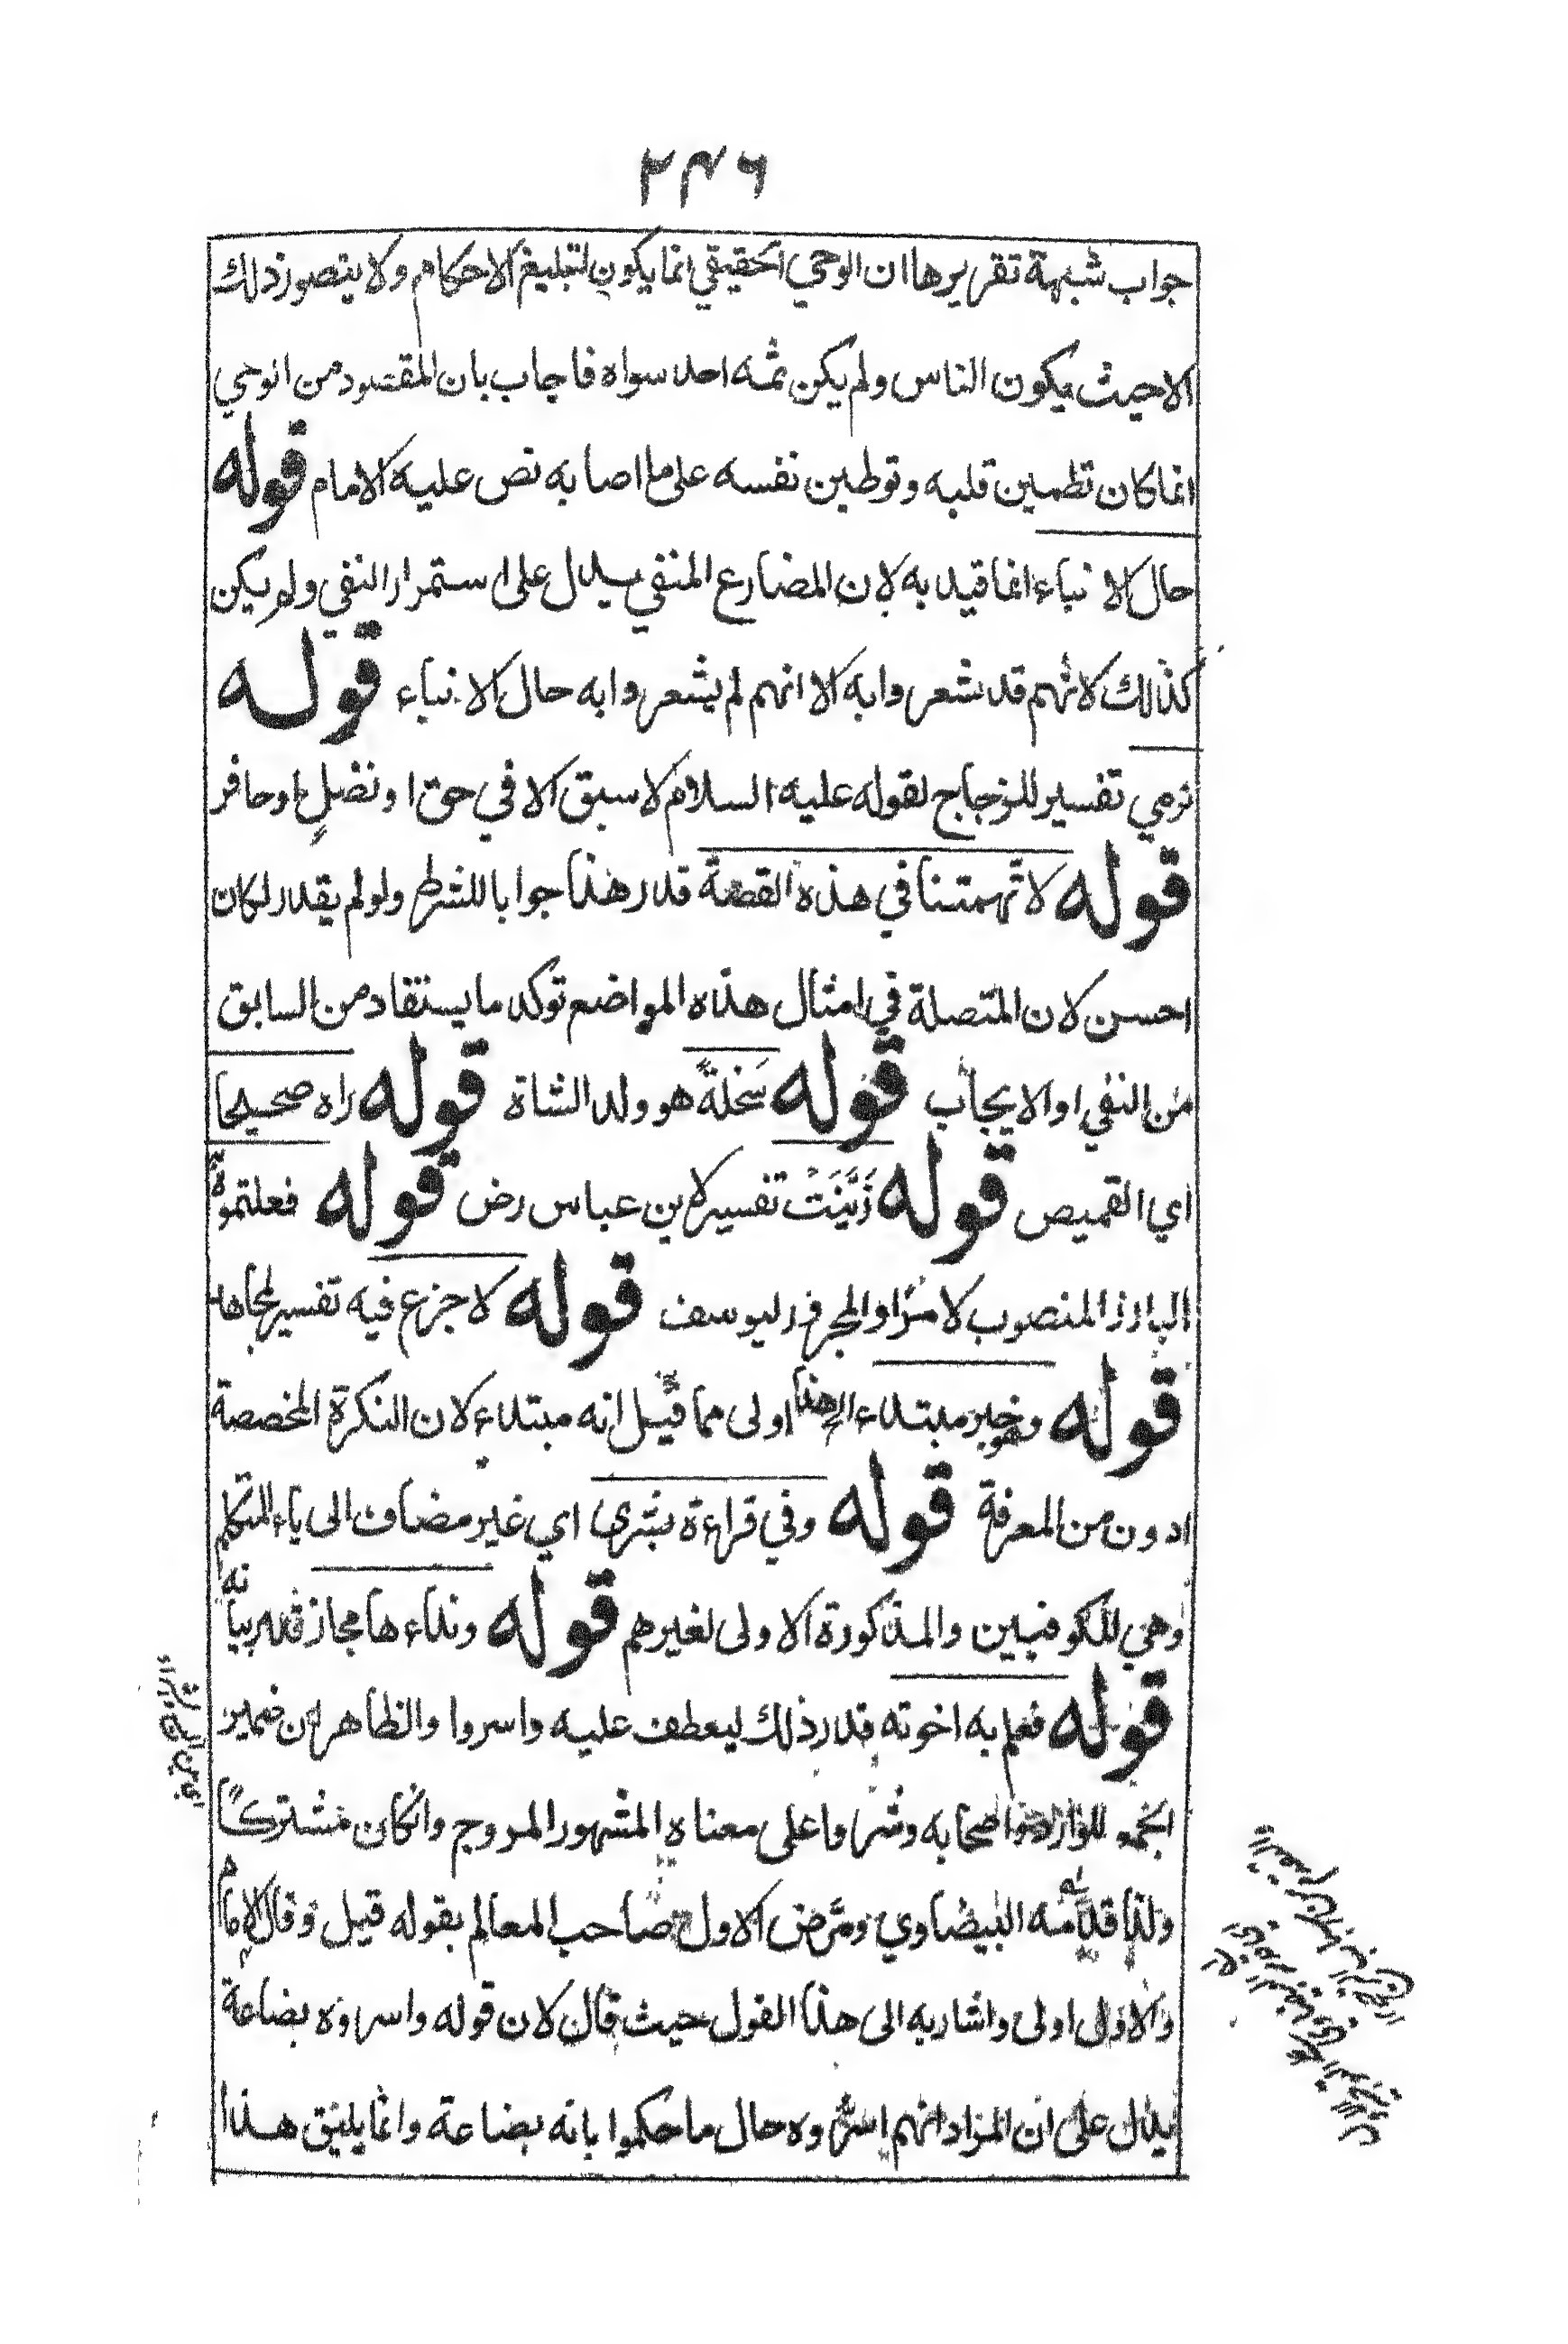 ۲۴۶
جواب شبهة تقريرها ان الوحي الحقيقي انما يكون لتبليغ الاحكام ولا يتصور ذلك
الا حيث يكون الناس ولم يكن ثمه احد سواه فاجاب بان المقصود من الوحي
انما كان تطمين قلبه وتوطين نفسه على ما اصابه نص عليه الامام قوله
حال الانباء انما قيد به لان المضارع المنفي يدل على استمرار النفي ولم يكن
كذالك لانهم قد شعروا به الا انهم لم يشعروا به حال الانباء قوله
نرمي تفسير للزجاج لقوله عليه السلام لا سبق الا في خف او نصل او حافر
قوله لاتهمتنا في هذه القصة قدر هذا جوابا للشرط ولو لم يقدر لكان
احسن لان المتصلة في امثال هذه المواضع توكد ما يستفاد من السابق
من النفي او الايجاب قوله سَخْلةً هو ولد الشاة قوله راه صحيحا
اي القميص قوله زَيَّنَتْ تفسير لابن عباس رض قوله فعلتموه
البارز المنصوب لامرا والمجرور ليوسف قوله لا جزع فيه تفسير لمجاهد
قوله وهو خبر مبتداء الخ هذا اولى مما قيل انه مبتداء لان النكرة المخصصة
ادون من المعرفة قوله وفي قراءة بشرى اي غير مضاف الى ياء المتكلم
وهي للكوفيين والمذكورة الاولى لغيرهم قوله ونداءها مجاز قد مر بيانه
قوله فعلم به اخوته قدر ذلك ليعطف عليه واسروا والظاهر ان ضمير
الجمع للوارد واصحابه وشروا على معناه المشهور المروج وانكان مشتركًا
ولذا قدمه البيضاوي ومرض الاول صاحب المعالم بقوله قيل وقال الامام
والاول اولى واشار به الى هذا القول حيث قال لان قوله واسروه بضاعة
يدل على ان المراد انهم اسروه حال ما حكموا بانه بضاعة وانما يليق هذا